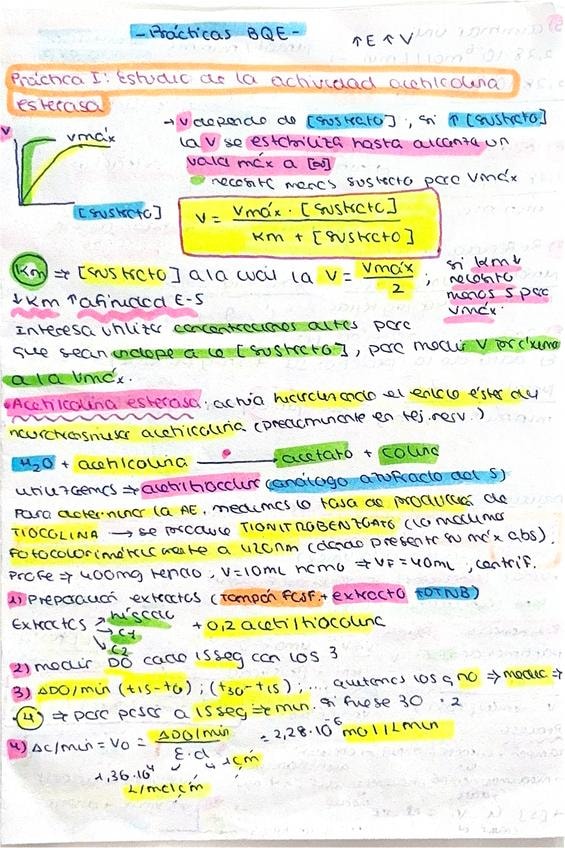 - Prácticas BQE -
↑E ↑V
Práctica I: Estudio de la actividad acetilcolina
esterasa
V
vmáx
[sustrato]
→ V depende de [sustrato], si ↑[sustrato]
la V se estabiliza hasta alcanza un
valor máx a [S]
necesito menos sustrato para Vmáx
V = Vmáx · [sustrato] / Km + [sustrato]
Km ⇒ [sustrato] a la cual la V = Vmáx / 2 ;
si Km↓
necesito
menos S para
vmáx.
↓Km ↑afinidad E-S
Interesa utilizar concentraciones altas para
que sean indep a la [sustrato], para medir V próxima
a la Vmáx.
• Acetilcolina esterasa: actúa hidrolizando el enlace éster del
neurotransmisor acetilcolina (predominante en tej. nerv.)
H₂O + acetilcolina → acetato + colina
utilizamos ⇒ acetiltiocolina (análogo azufrado del S)
Para determinar la AE, medimos la tasa de producción de
TIOCOLINA → se produce TIONITROBENZOATO (lo medimos
fotocolorimétricamente a 420nm (donde presenta su máx abs).
Profe ⇒ 400mg tejido, V=10mL homo ⇒ VF=40mL, centrif.
1) Preparación extractos (tampón FOSF + extracto + DTNB)
Extractos → hígado
→ C1
→ C2
+ 0,2 acetiltiocolina
2) medir DO cada 15seg con los 3
3) ΔDO/min (t15-t0); (t30-t15); ... quitamos los q no ⇒ media ⇒
·4 ⇒ para pasar a 15seg ⇒ min. si fuese 30 · 2
4) Δc/min = V0 = ΔDO/min / ε·d = 2,28·10⁻⁶ mol/L min
1cm
1,36·10⁴
L/mol cm